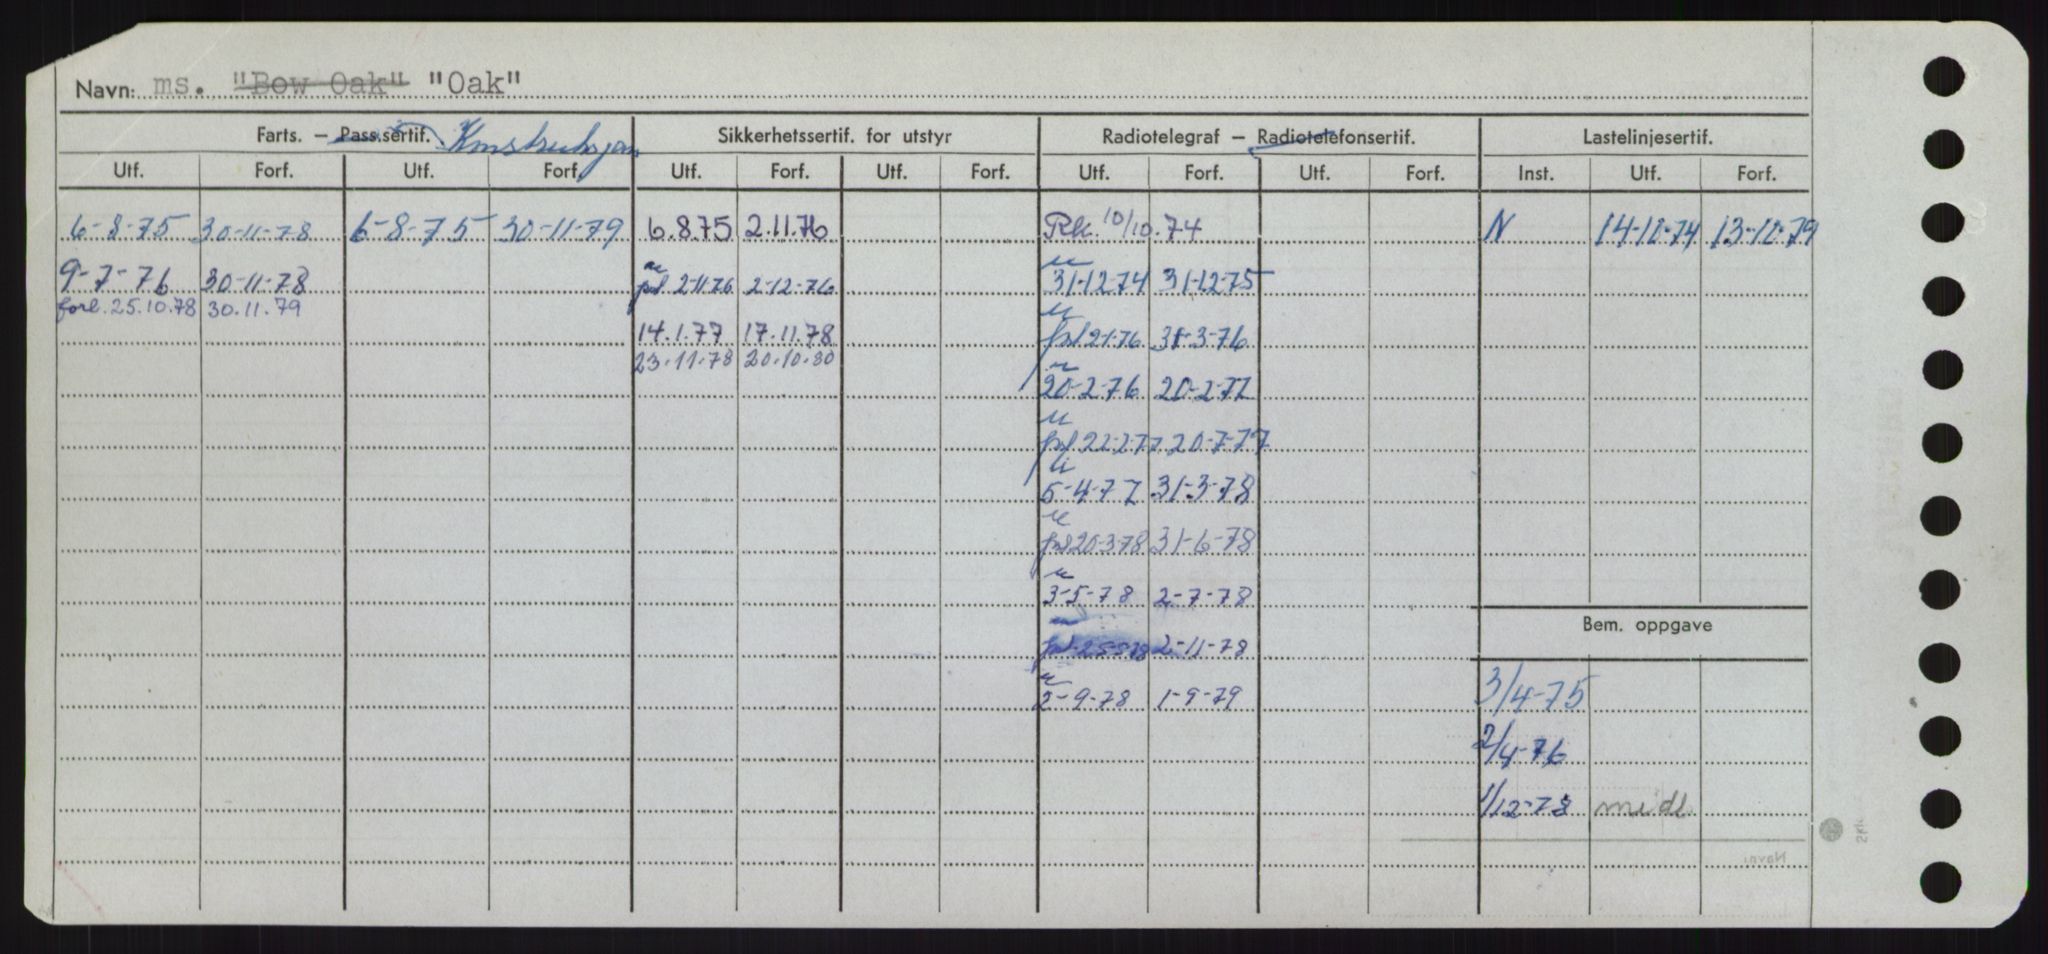 Navn: ms. "Bow Oak" "Oak"
Farts. – Pass.sertif. Konstruksjon Sikkerhetssertif. for utstyr Radiotelegraf – Radiotelefonsertif. Lastelinjesertif.
Utf. Forf. Utf. Forf. Utf. Forf. Utf. Forf. Utf. Forf. Utf. Forf. Inst. Utf. Forf.
6-8-75 30-11-78 6-8-75 30-11-79 6.8.75 2.11.76 Rk. 10/10.74 N 14-10-74 13-10-79
9-7-76 30-11-78 2-11-76 2-12-76 31-12-74 31-12-75
forl. 25.10.78 30.11.79
14.1.77 17.11.78 2-1-76 31-3-76
23.11.78 20.10.80
20-2-76 20-2-77
22-2-77 20-7-77
5-4-77 31-3-78
20-3-78 31-6-78
3-5-78 2-7-78
Bem. oppgave
2-11-78
2-9-78 1-9-79 3/4-75
2/4-76
1/12-78 midl.
Navn: